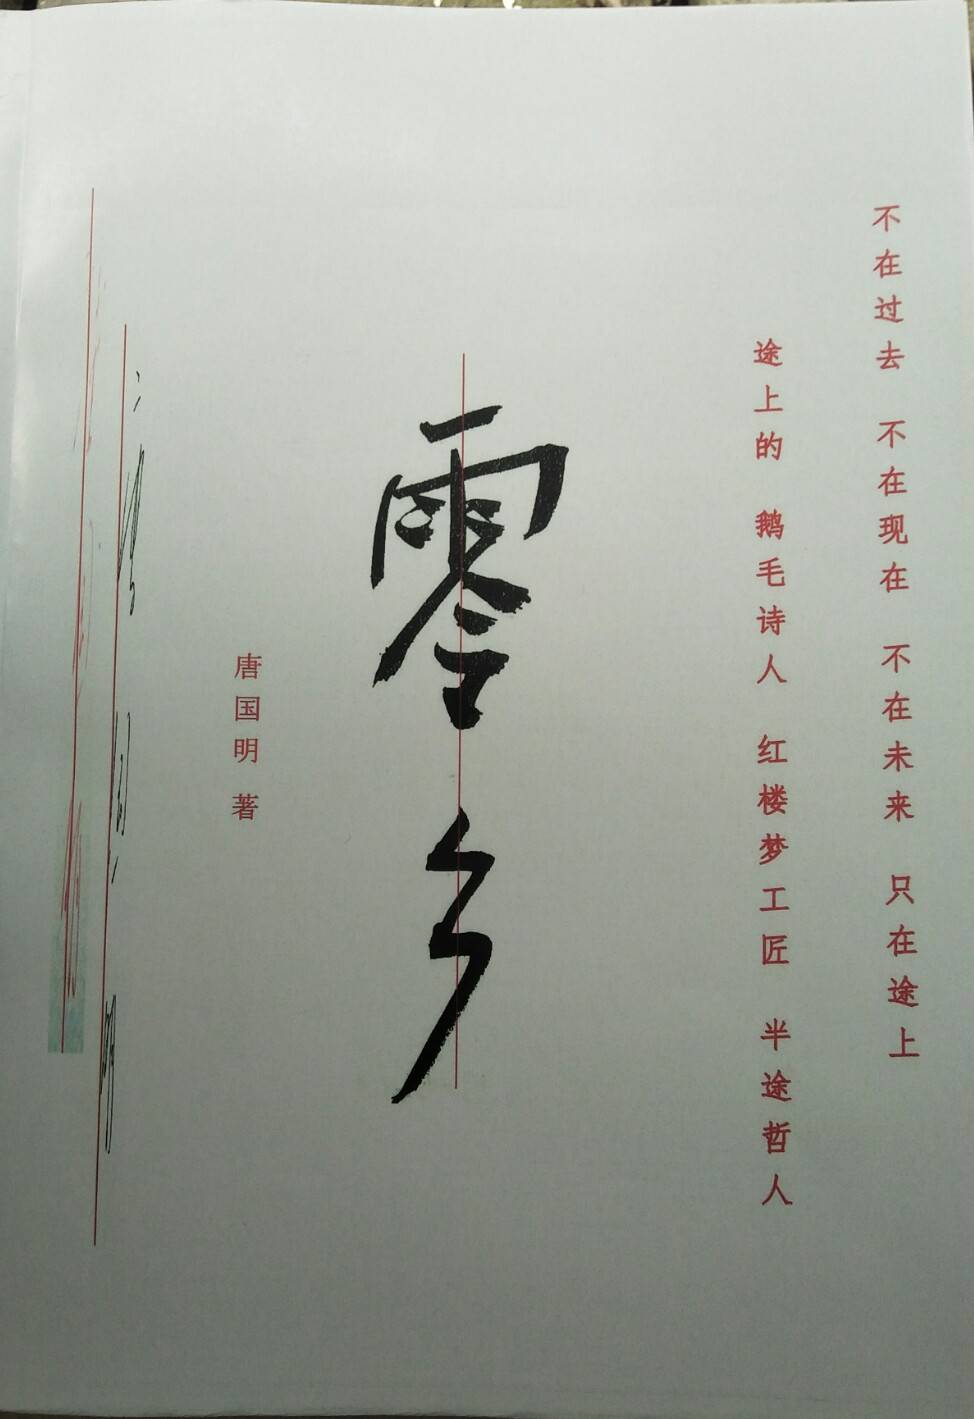 不在过去 不在现在 不在未来 只在途上
途上的 鹅毛诗人 红楼梦工匠 半途哲人
零乡
唐国明 著